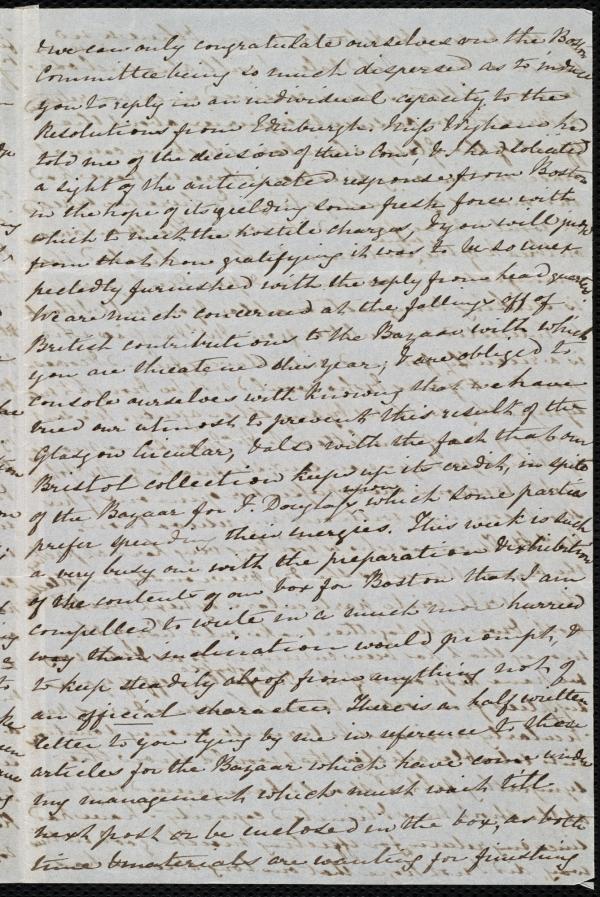 & we can only congratulate ourselves on the Boston
Committee being so much dispersed as to induce
you to reply in an individual capacity to the
Resolutions from Edinburgh. Miss Wigham had
told me of the decision of their Come, & I had
a sight of the anticipated response from Boston
in the hope of its yielding some fresh force with
which to meet the hostile charges, & you will judge
from that how gratifying it was to be so unex
pectedly furnished with the reply from head quarters
We are much concerned at the falling off of
British contributions to the Bazaar with which
you are threatened this year; & are obliged to
console ourselves with knowing that we have
tried our utmost to prevent this result of the
Glasgow Circular, & also with the fact that our
Bristol collection keeps up its credit, in spite
of the Bazaar for F. Douglass, upon which some parties
prefer spending their energies. This week is such
a very busy one with the preparation & distribution
of the contents of our box for Boston that I am
compelled to write in a much more hurried
way than inclination would prompt, &
to keep steadily aloof from anything not of
an official character. There is a half written
letter to you lying by me in reference to those
articles for the Bazaar which have come under
my management, which must wait till
next post or be inclosed in the box, as both
time & materials are wanting for finishing